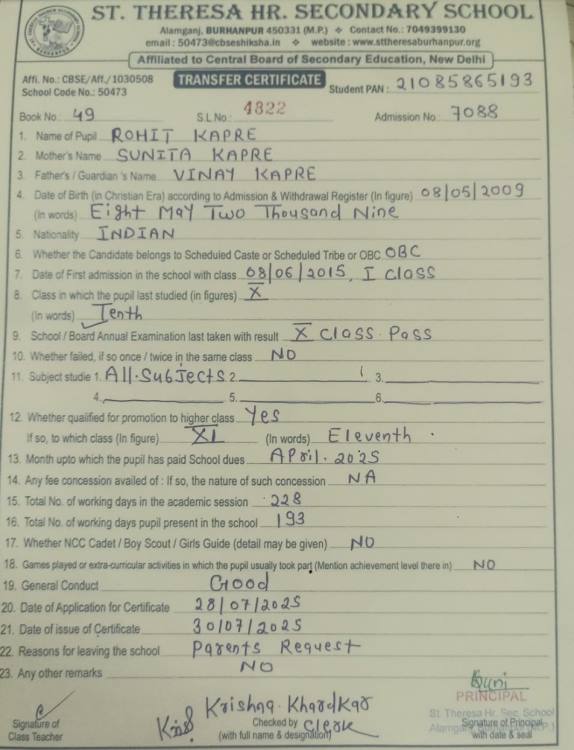 ST. THERESA HR. SECONDARY SCHOOL
Alamganj, BURHANPUR 450331 (M.P.) ❖ Contact No.: 7049399130
email : 50473@cbseshiksha.in ❖ website : www.sttheresaburhanpur.org
Affiliated to Central Board of Secondary Education, New Delhi
Affi. No.: CBSE/Aff./1030508 TRANSFER CERTIFICATE Student PAN : 21085865193
School Code No.: 50473
Book No 49 S.L No 4822 Admission No 7088
1. Name of Pupil ROHIT KAPRE
2. Mother's Name SUNITA KAPRE
3. Father's / Guardian 's Name VINAY KAPRE
4. Date of Birth (in Christian Era) according to Admission & Withdrawal Register (In figure) 08/05/2009
(In words) Eight May Two Thousand Nine
5. Nationality INDIAN
6. Whether the Candidate belongs to Scheduled Caste or Scheduled Tribe or OBC OBC
7. Date of First admission in the school with class 08/06/2015, I class
8. Class in which the pupil last studied (in figures) X
(In words) Tenth
9. School / Board Annual Examination last taken with result X class Pass
10. Whether failed, if so once / twice in the same class NO
11. Subject studie 1. All.Subjects 2. 3.
4. 5. 6.
12. Whether qualified for promotion to higher class Yes
If so, to which class (In figure) XI (In words) Eleventh
13. Month upto which the pupil has paid School dues April. 2025
14. Any fee concession availed of : If so, the nature of such concession NA
15. Total No. of working days in the academic session 228
16. Total No. of working days pupil present in the school 193
17. Whether NCC Cadet / Boy Scout / Girls Guide (detail may be given) NO
18. Games played or extra-curricular activities in which the pupil usually took part (Mention achievement level there in) NO
19. General Conduct Good
20. Date of Application for Certificate 28/07/2025
21. Date of issue of Certificate 30/07/2025
22. Reasons for leaving the school Parents Request
23. Any other remarks NO
PRINCIPAL
Krishna Khardkar
St. Theresa Hr. Sec. School
Signature of Checked by Clerk Signature of Principal
Class Teacher (with full name & designation) with date & seal